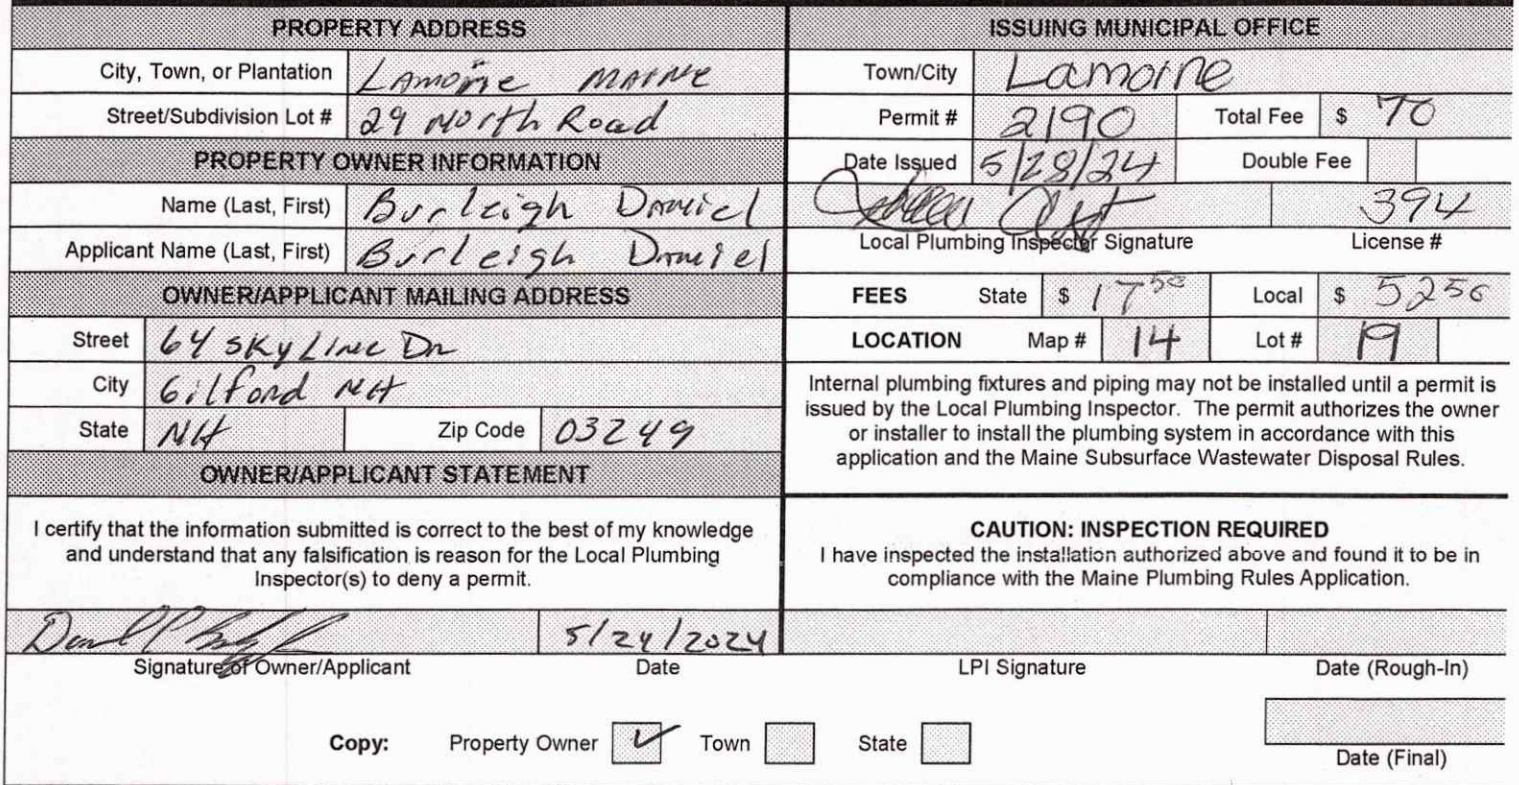 PROPERTY ADDRESS
City, Town, or Plantation Lamoine MAINE
Street/Subdivision Lot # 29 North Road
PROPERTY OWNER INFORMATION
Name (Last, First) Burleigh Daniel
Applicant Name (Last, First) Burleigh Daniel
OWNER/APPLICANT MAILING ADDRESS
Street 64 SKYLINE Dr
City Gilford NH
State NH Zip Code 03249
OWNER/APPLICANT STATEMENT
I certify that the information submitted is correct to the best of my knowledge
and understand that any falsification is reason for the Local Plumbing
Inspector(s) to deny a permit.
5/24/2024
Signature of Owner/Applicant Date
ISSUING MUNICIPAL OFFICE
Town/City Lamoine
Permit # 2190 Total Fee $ 70
Date Issued 5/28/24 Double Fee
394
Local Plumbing Inspecter Signature License #
FEES State $ 17 50 Local $ 52 50
LOCATION Map # 14 Lot # 19
Internal plumbing fixtures and piping may not be installed until a permit is
issued by the Local Plumbing Inspector. The permit authorizes the owner
or installer to install the plumbing system in accordance with this
application and the Maine Subsurface Wastewater Disposal Rules.
CAUTION: INSPECTION REQUIRED
I have inspected the installation authorized above and found it to be in
compliance with the Maine Plumbing Rules Application.
LPI Signature Date (Rough-In)
Copy: Property Owner Town State
Date (Final)